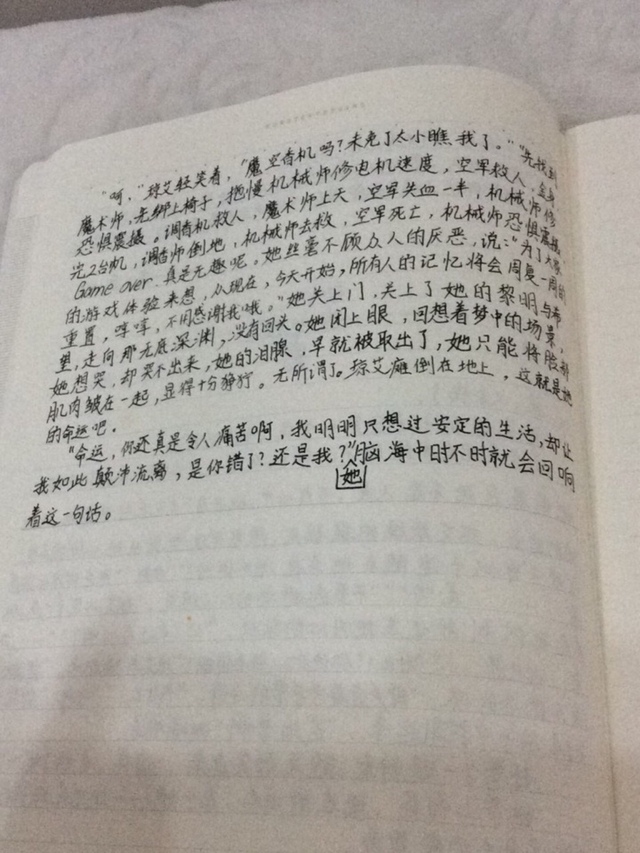 “呵，”琼艾轻笑着，“魔空香机吗？未免了太小瞧我了。”“先找到
魔术师，先绑上椅子，拖慢机械师修电机速度，空军救人，全身
恐惧震慑。调香机救人，魔术师上天，空军失血一半，机械师修
完2台机，调香师倒地，机械师去救，空军死亡，机械师恐惧震慑
Game over. 真是无趣呢。她丝毫不顾众人的厌恶，说：“为了大家
的游戏体验来想，从现在，今天开始，所有人的记忆将会周复一周的
重置，哼哼，不用感谢我哦。”她关上门，关上了她的黎明与希
望，走向那无底深渊，没有回头。她闭上眼，回想着梦中的场景，
她想哭，却哭不出来，她的泪腺，早就被取出了，她只能将脸部
肌肉皱在一起，显得十分狰狞。无所谓了。琼艾瘫倒在地上，这就是她
的命运吧。
“命运，你还真是令人痛苦啊，我明明只想过安定的生活，却让
我如此颠沛流离，是你错了？还是我？”她脑海中时不时就会回响
着这一句话。